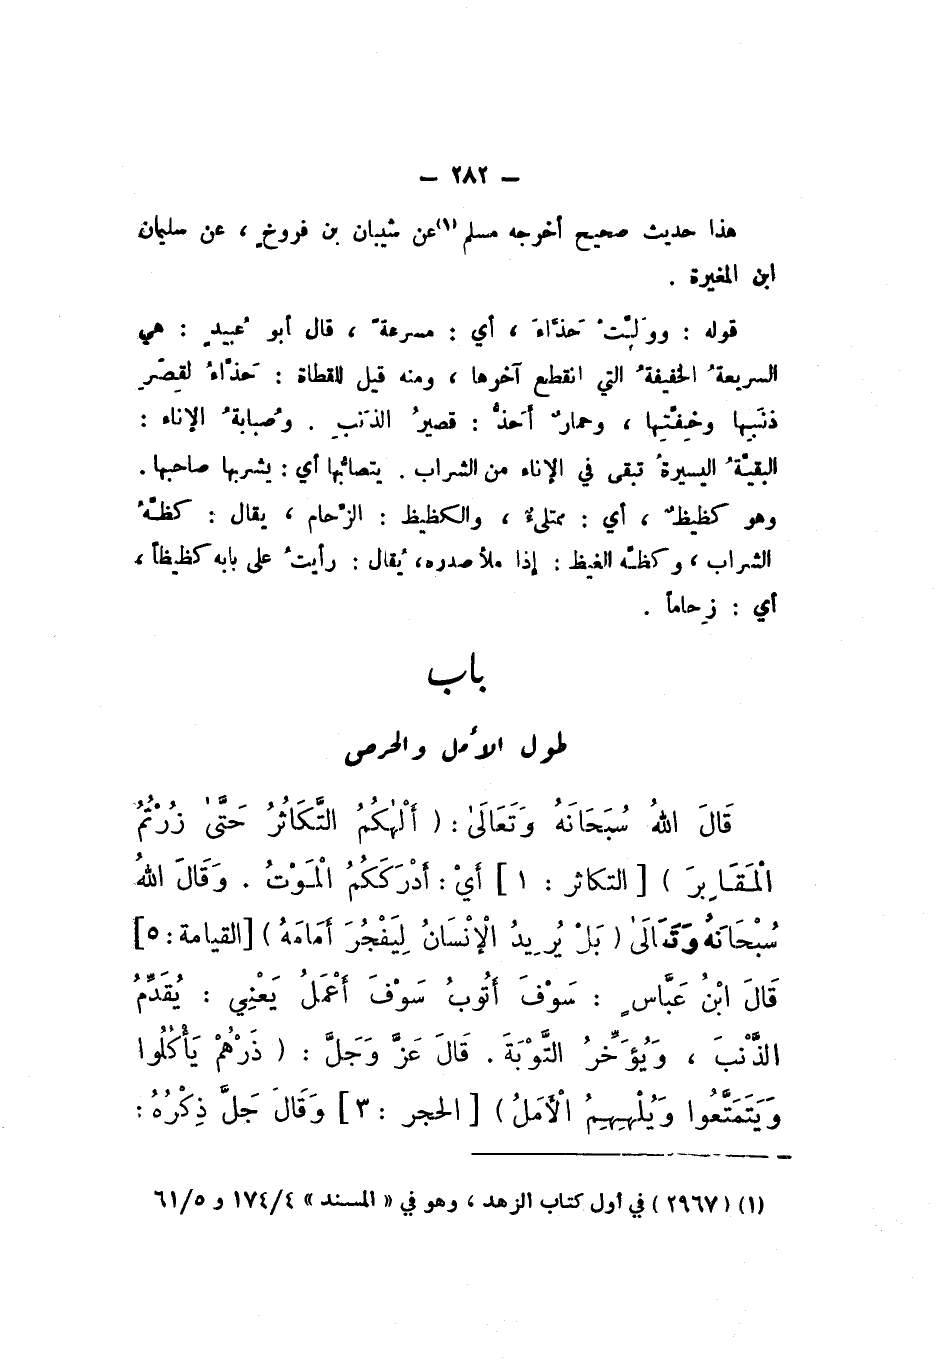 – ٢٨٢ –
هذا حديث صحيح أخرجه مسلم (١) عن شيبان بن فروخٍ ، عن سليمان
ابن المغيرة .
قوله : وولَّتْ حَذَّاءَ ، أي : مسرعةً ، قال أبو عُبيدٍ : هي
السريعةُ الخفيفةُ التي انقطع آخرها ، ومنه قيل للقطاة : حَذَّاءُ لقِصَرِ
ذنَبِها وخِفَّتِها ، وحمارٌ أَحَذُّ : قصيرُ الذَنبِ . وصُبابةُ الإناء :
البقيَّةُ اليسيرةُ تبقى في الإناء من الشراب . يتصابُّها أي : يشربها صاحبها .
وهو كظيظٌ ، أي : ممتلىءٌ ، والكظيظ : الزِّحام ، يقال : كظَّهُ
الشراب ، وكظَّه الغيظ : إذا ملأ صدره، يُقال : رأيتُ على بابه كظيظاً ،
أي : زِحاماً .
باب
طول الأمل والحرص
قَالَ اللهُ سُبَحَانَهُ وَتَعَالَىٰ : ( أَلْهٰكُمُ التَّكَاثُرُ حَتَّىٰ زُرْتُمُ
الْمَقَابِرَ ) [ التكاثر : ١ ] أَيْ : أَدْرَكَكُمُ الْمَوْتُ . وَقَالَ اللهُ
سُبْحَانَهُ وَتَعَالَىٰ ( بَلْ يُرِيدُ الْإِنْسَانُ لِيَفْجُرَ أَمَامَهُ ) [القيامة : ٥]
قَالَ ابْنُ عَبَّاسٍ : سَوْفَ أَتُوبُ سَوْفَ أَعْمَلُ يَعْنِي : يُقَدِّمُ
الذَّنْبَ ، وَيُؤَخِّرُ التَّوْبَةَ . قَالَ عَزَّ وَجَلَّ : ( ذَرْهُمْ يَأْكُلُوا
وَيَتَمَتَّعُوا وَيُلْهِهِمُ الْأَمَلُ ) [ الحجر : ٣ ] وَقَالَ جَلَّ ذِكْرُهُ :
(١) ( ٢٩٦٧ ) في أول كتاب الزهد ، وهو في « المسند » ١٧٤/٤ و ٦١/٥